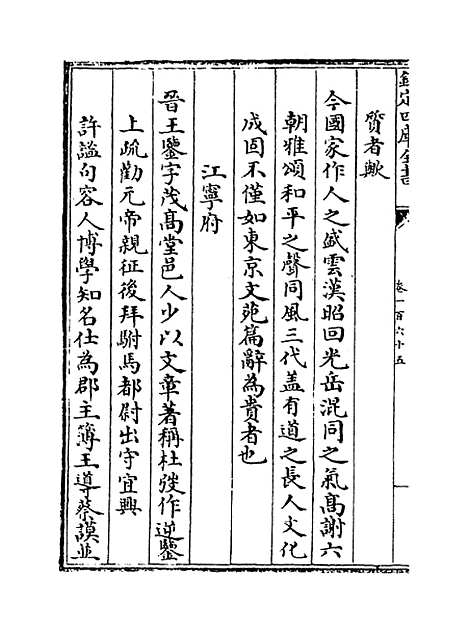 欽定四庫全書
卷一百六十五
質者歟
今國家作人之盛雲漢昭回光岳混同之氣髙謝六
朝雅頌和平之聲同風三代盖有道之長人文化
成固不僅如東京文苑篇辭為貴者也
江寧府
晉王鑒字茂髙堂邑人少以文章著稱杜弢作逆鑒
上疏勸元帝親征後拜駙馬都尉出守宜興
許謐句容人博學知名仕為郡主簿王導蔡謨並